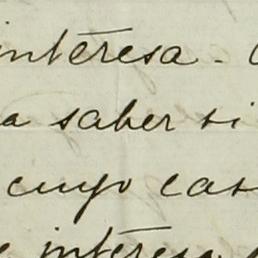 interesa.
a saber si
cuyo cas
interesa